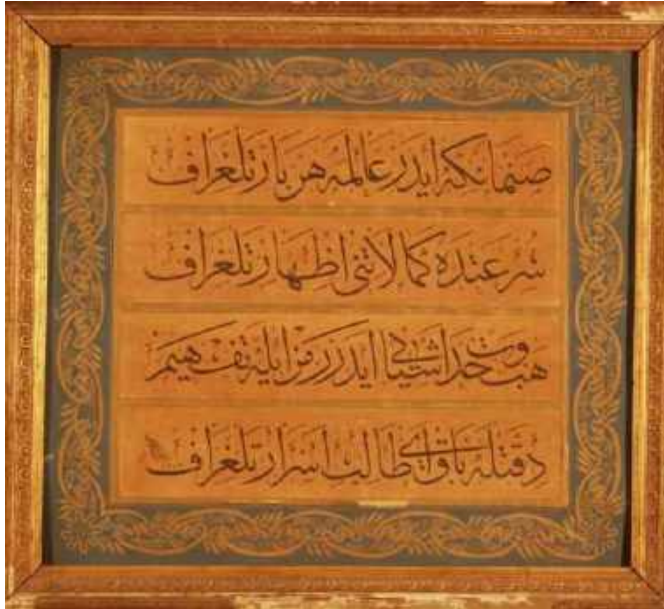 صنما نكه ايدر عالمه هر بار تلغراف
سرعتده كمالاتنى اظهار تلغراف
خدا اشيايى ايدر رمز ايله تفهيم
دقتله باق اى طالب اسرار تلغراف